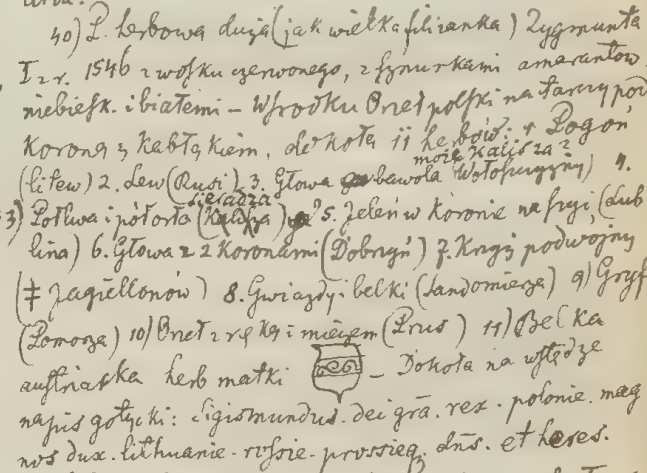 40) P. herbowa duża (jak wielka filiżanka) Zygmunta
I z r. 1546 z wosku czerwonego, z sznurkami amarantow.
niebiesk. i białemi – W środku Orzeł polski na tarczy pod
Koroną z Kabłąkiem, dokoła 11 herbów: 1 Pogoń
może Kalisza?
(litew) 2. Lew (Rusi) 3. Głowa bawola Wołoszczyzny) 4.
Sieradza
3) Półlwa i półorła (Kalisza) 5. Jeleń w koronie na szyi (Lub
lina) 6. Głowa z 2 Koronami (Dobrzyń) 7. Krzyż podwójny
(‡ Jagiellonów) 8. Gwiazdy i belki (Sandomierza) 9) Gryf
(Pomorza) 10) Orzeł z ręką i mieczem (Prus) 11) Belka
austriacka herb matki – Dokoła na wstędze
napis gotycki: Sigismundus. dei grā. rex. polonie. mag
nus dux. lithuanie. rossie. prossieq. dn̄s. et heres.